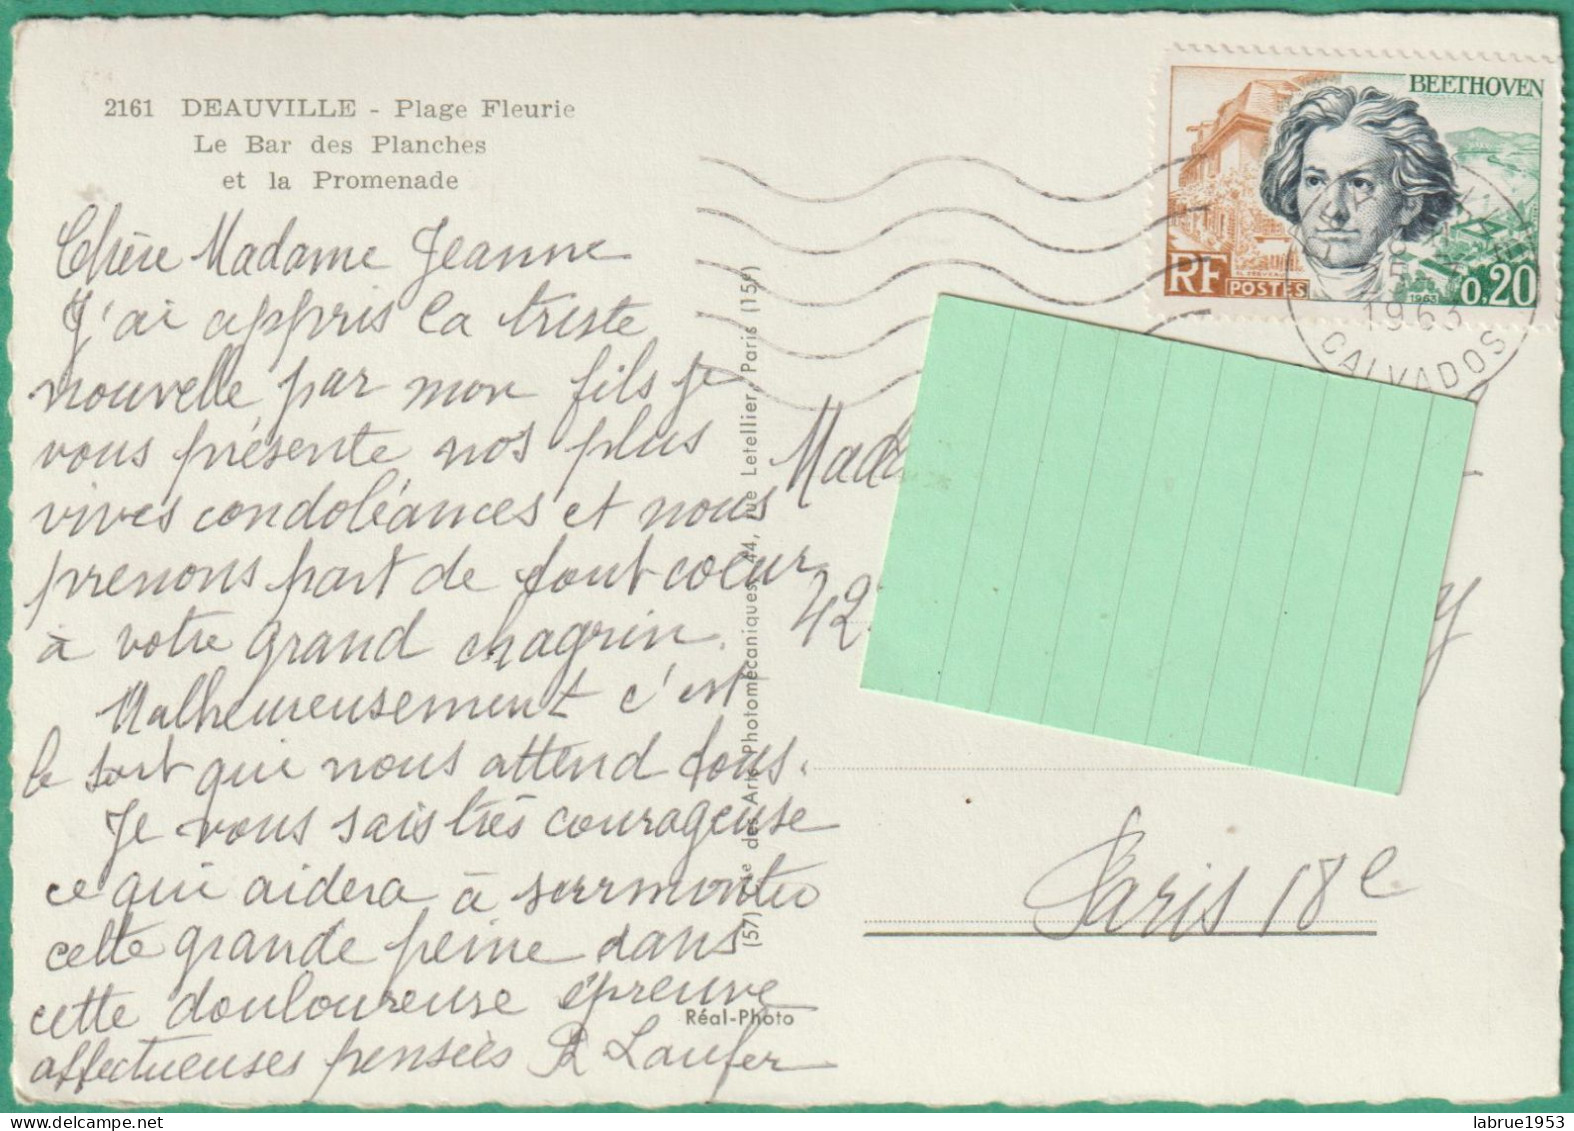 2161 DEAUVILLE - Plage Fleurie
Le Bar des Planches
et la Promenade
Chère Madame Jeanne
J'ai appris la triste
nouvelle par mon fils je
vous présente nos plus
vives condoléances et nous
prenons part de tout coeur
à votre grand chagrin.
Malheureusement c'est
le sort qui nous attend tous.
Je vous sais très courageuse
ce qui aidera à surmonter
cette grande peine dans
cette douloureuse épreuve
affectueuses pensées R Laufer
Réal-Photo
des Arts Photomécaniques, 44, rue Letellier, Paris (15e)
BEETHOVEN
RF
POSTES
1963
0,20
1963
CALVADOS
42
Paris 18e
labrue1953